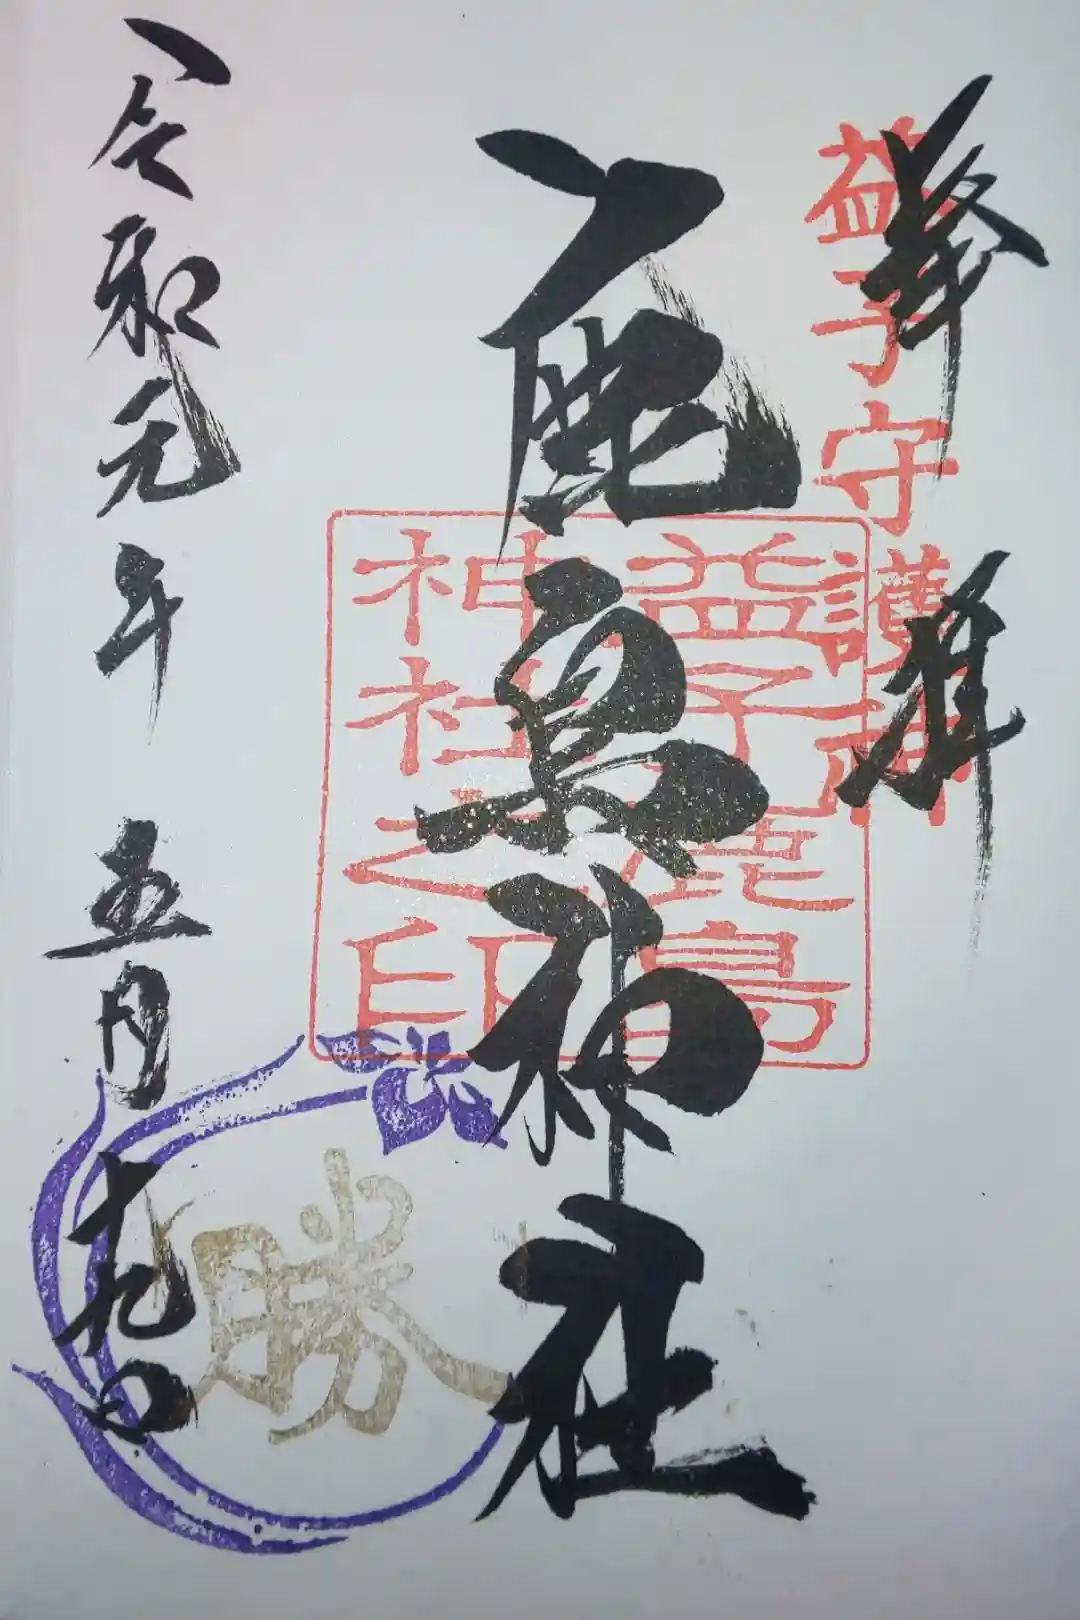 奉拝
益子守護神
鹿島神社
益子鹿島
神社之印
令和元年 五月十九日
勝